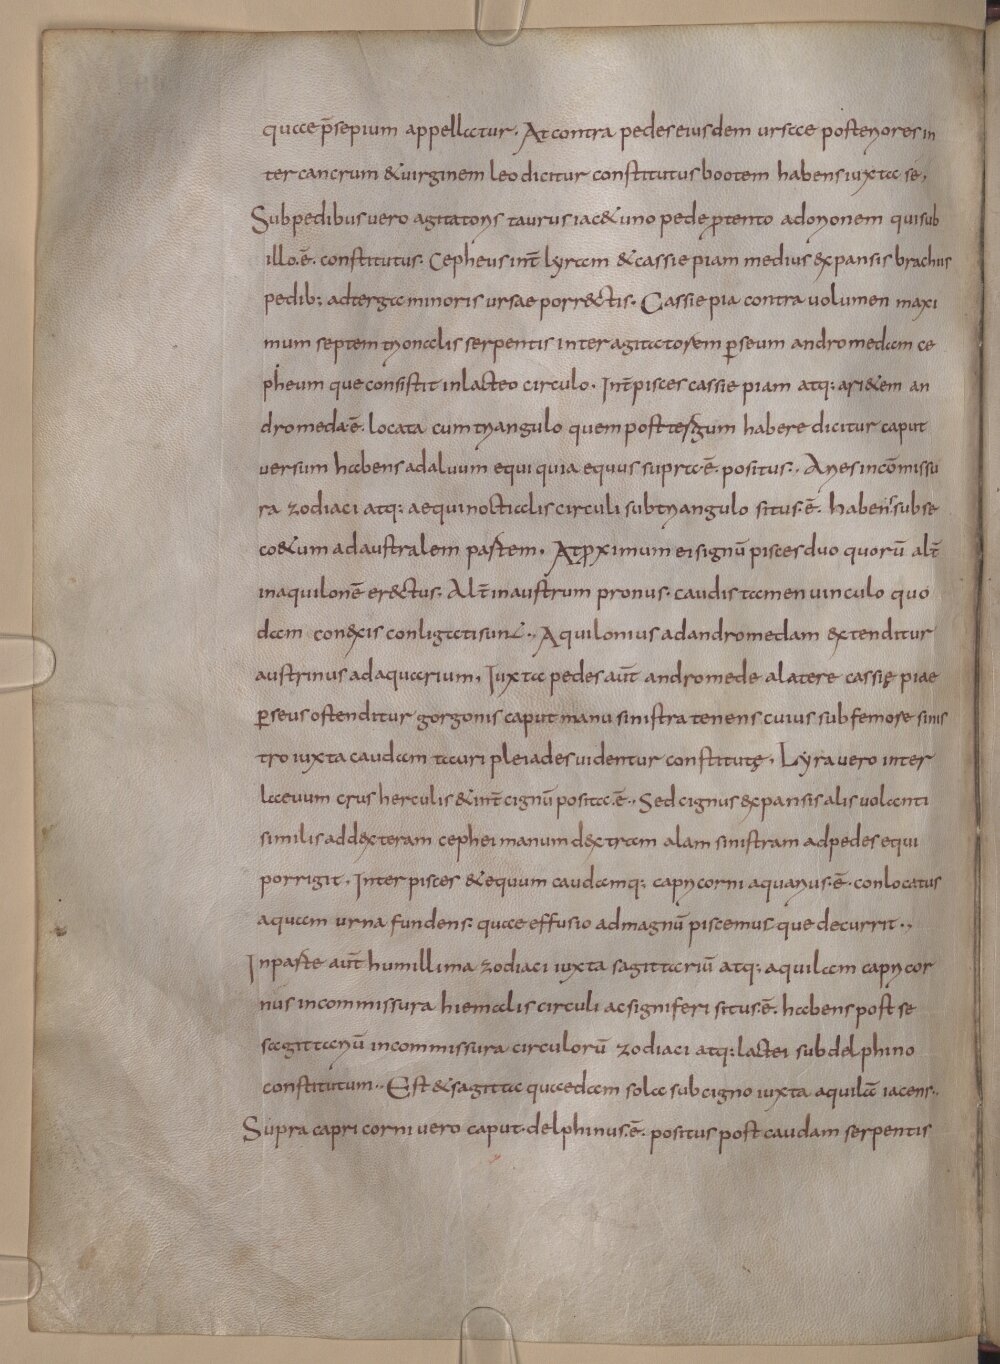 quae p̄sepium appellatur. At contra pedes eiusdem ursae posteriores in
ter cancrum & uirginem leo dicitur constitutus bootem habens iuxta se,
Sub pedibus uero agitatoris taurus iac& uno pede p̱tento ad orionem qui sub
illo .ē. constitutus. Cepheus int̄ lyram & cassiepiam medius expansis brachiis
pedib; ad terga minoris ursae porrectis. Cassiepia contra uolumen maxi
mum septemtrionalis serpentis inter agitatorem p̱seum andromedam ce
pheum que consistit in lacteo circulo. Int̄ pisces cassiepiam atq; ari&em an
dromeda .ē. locata cum triangulo quem post tergum habere dicitur caput
uersum habens ad aluum equi quia equus supra .ē. positus., Aries in cōmissu
ra zodiaci atq; aequinoctialis circuli sub triangulo situs .ē. habens sub se
co&um ad australem partem. At p̱ximum ei signū pisces duo quorū alt̄
in aquilonē erectus. Alt̄ in austrum pronus. caudis tamen uinculo quo
dam conexis conligati sunt., Aquilonius ad andromedam extenditur
austrinus ad aquarium, Iuxta pedes aūt andromede a latere cassię piae
p̱seus ostenditur gorgonis caput manu sinistra tenens cuius sub femore sinis
tro iuxta caudam tauri pleiades uidentur constitutę, Lyra uero inter
laeuum crus herculis & int̄ cignū posita .ē., Sed cignus expansis alis uolanti
similis ad dexteram cephei manum dextram alam sinistram ad pedes equi
porrigit, Inter pisces & equum caudamq; capricorni aquarius .ē. conlocatus
aquam urna fundens. quae effusio ad magnū piscem usque decurrit.,
In parte aūt humillima zodiaci iuxta sagittariū atq; aquilam capricor
nus in commissura hiemalis circuli ac signiferi situs .ē. habens post se
sagittariū in commissura circulorū zodiaci atq; lactei sub delphino
constitutum., Est & sagitta quaedam sola sub cigno iuxta aquilā iacens.,
Supra capricorni uero caput. delphinus .ē. positus post caudam serpentis